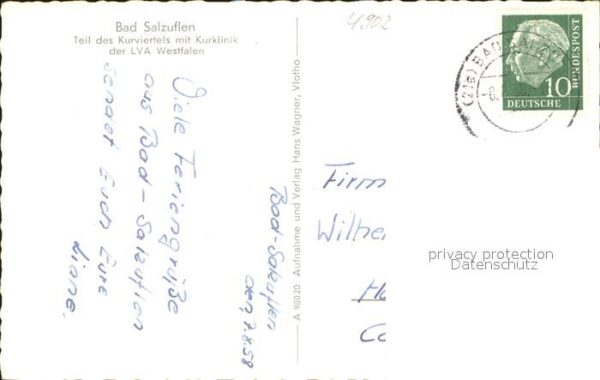 Bad Salzuflen
Teil des Kurviertels mit Kurklinik
der LVA Westfalen
4.902
Viele Feriengrüße
aus Bad-Salzuflen
sendet Euch Eure
Liane.
Bad-Salzuflen
den, 7.8.58
A 90020 Aufnahme und Verlag Hans Wagner, Vlotho
(21a) BAD
10
DEUTSCHE
BUNDESPOST
Firm
Wilhe
privacy protection
Datenschutz